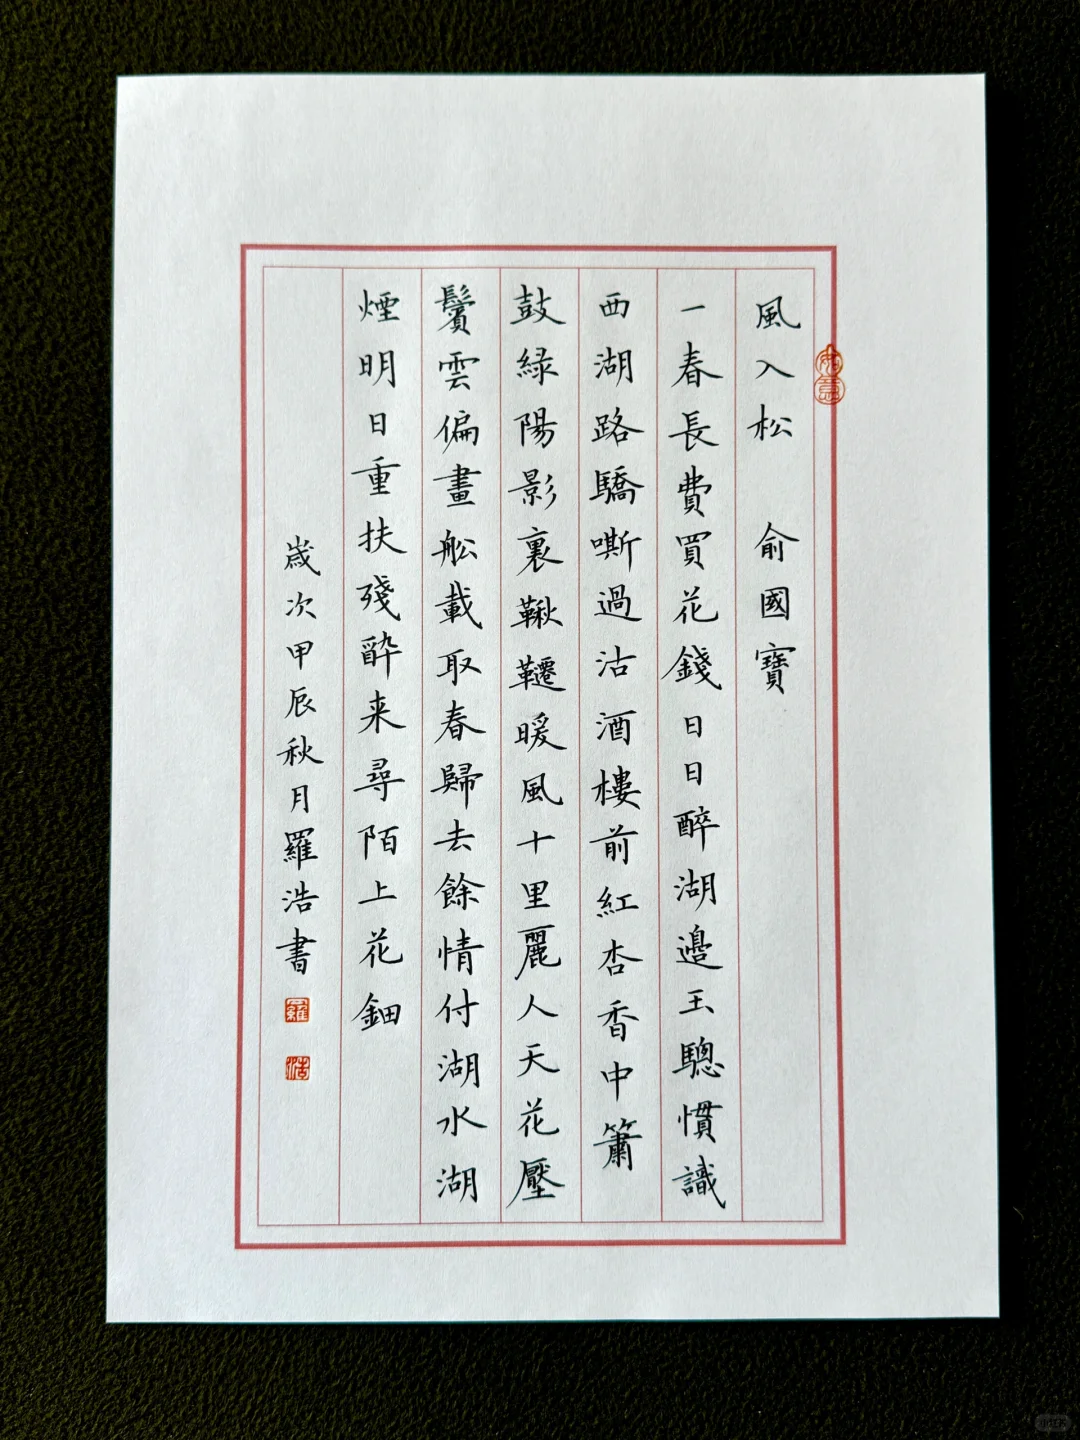 風入松 俞國寶
一春長費買花錢日日醉湖邊玉驄慣識
西湖路驕嘶過沽酒樓前紅杏香中簫
鼓綠陽影裏鞦韆暖風十里麗人天花壓
鬢雲偏畫舩載取春歸去餘情付湖水湖
煙明日重扶殘酔来尋陌上花鈿
歲次甲辰秋月羅浩書
如意
羅
浩